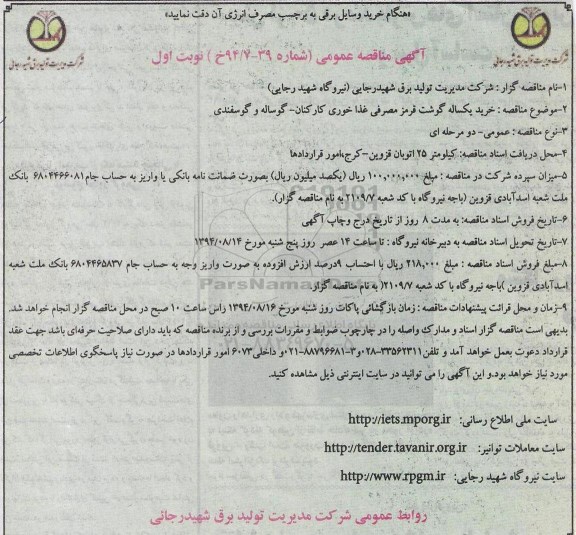 «هنگام خرید وسایل برقی به برچسب مصرف انرژی آن دقت نمایید»
شرکت مدیریت تولید برق شهید رجایی
شرکت مدیریت تولید برق شهید رجایی
آگهی مناقصه عمومی (شماره ۳۹-۹۴/۷خ) نوبت اول
۱-نام مناقصه گزار : شرکت مدیریت تولید برق شهیدرجایی (نیروگاه شهید رجایی)
۲-موضوع مناقصه : خرید یکساله گوشت قرمز مصرفی غذا خوری کارکنان- گوساله و گوسفندی
۳-نوع مناقصه : عمومی- دو مرحله ای
۴-محل دریافت اسناد مناقصه: کیلومتر ۲۵ اتوبان قزوین-کرج،امور قراردادها
۵-میزان سپرده شرکت در مناقصه : مبلغ ۱۰۰,۰۰۰,۰۰۰ ریال (یکصد میلیون ریال) بصورت ضمانت نامه بانکی یا واریز به حساب جام۶۸۰۴۴۶۶۰۸۱ بانک
ملت شعبه اسدآبادی قزوین (باجه نیروگاه با کد شعبه ۲۱۰۹/۷ به نام مناقصه گزار).
۶-تاریخ فروش اسناد مناقصه: به مدت ۸ روز از تاریخ درج وچاپ آگهی
۷-تاریخ تحویل اسناد مناقصه به دبیرخانه نیروگاه : تا ساعت ۱۴ عصر روز پنج شنبه مورخ ۱۳۹۴/۰۸/۱۴
۸-مبلغ فروش اسناد مناقصه : مبلغ ۲۱۸,۰۰۰ ریال با احتساب ۹درصد ارزش افزوده به صورت واریز وجه به حساب جام ۶۸۰۴۴۶۵۸۳۷ بانک ملت شعبه
اسدآبادی قزوین )باجه نیروگاه با کد شعبه ۲۱۰۹/۷( به نام مناقصه گزار
۹-زمان و محل قرائت پیشنهادات مناقصه : زمان بازگشائی پاکات روز شنبه مورخ ۱۳۹۴/۰۸/۱۶ راس ساعت ۱۰ صبح در محل مناقصه گزار انجام خواهد شد.
بدیهی است مناقصه گزار اسناد و مدارک واصله را در چارچوب ضوابط و مقررات بررسی و از برنده مناقصه که باید دارای صلاحیت حرفه‌ای باشد جهت عقد
قرارداد دعوت بعمل خواهد آمد و تلفن۳۳۵۶۲۳۱۱-۰۲۸و۳-۸۸۷۹۶۶۸۱-۰۲۱و داخلی۶۰۷۳ امور قراردادها در صورت نیاز پاسخگوی اطلاعات تخصصی
مورد نیاز خواهد بود.و این آگهی را می توانید در سایت اینترنتی ذیل مشاهده کنید.
سایت ملی اطلاع رسانی: http://iets.mporg.ir
سایت معاملات توانیر: http://tender.tavanir.org.ir
سایت نیروگاه شهید رجایی: http://www.rpgm.ir
روابط عمومی شرکت مدیریت تولید برق شهیدرجائی